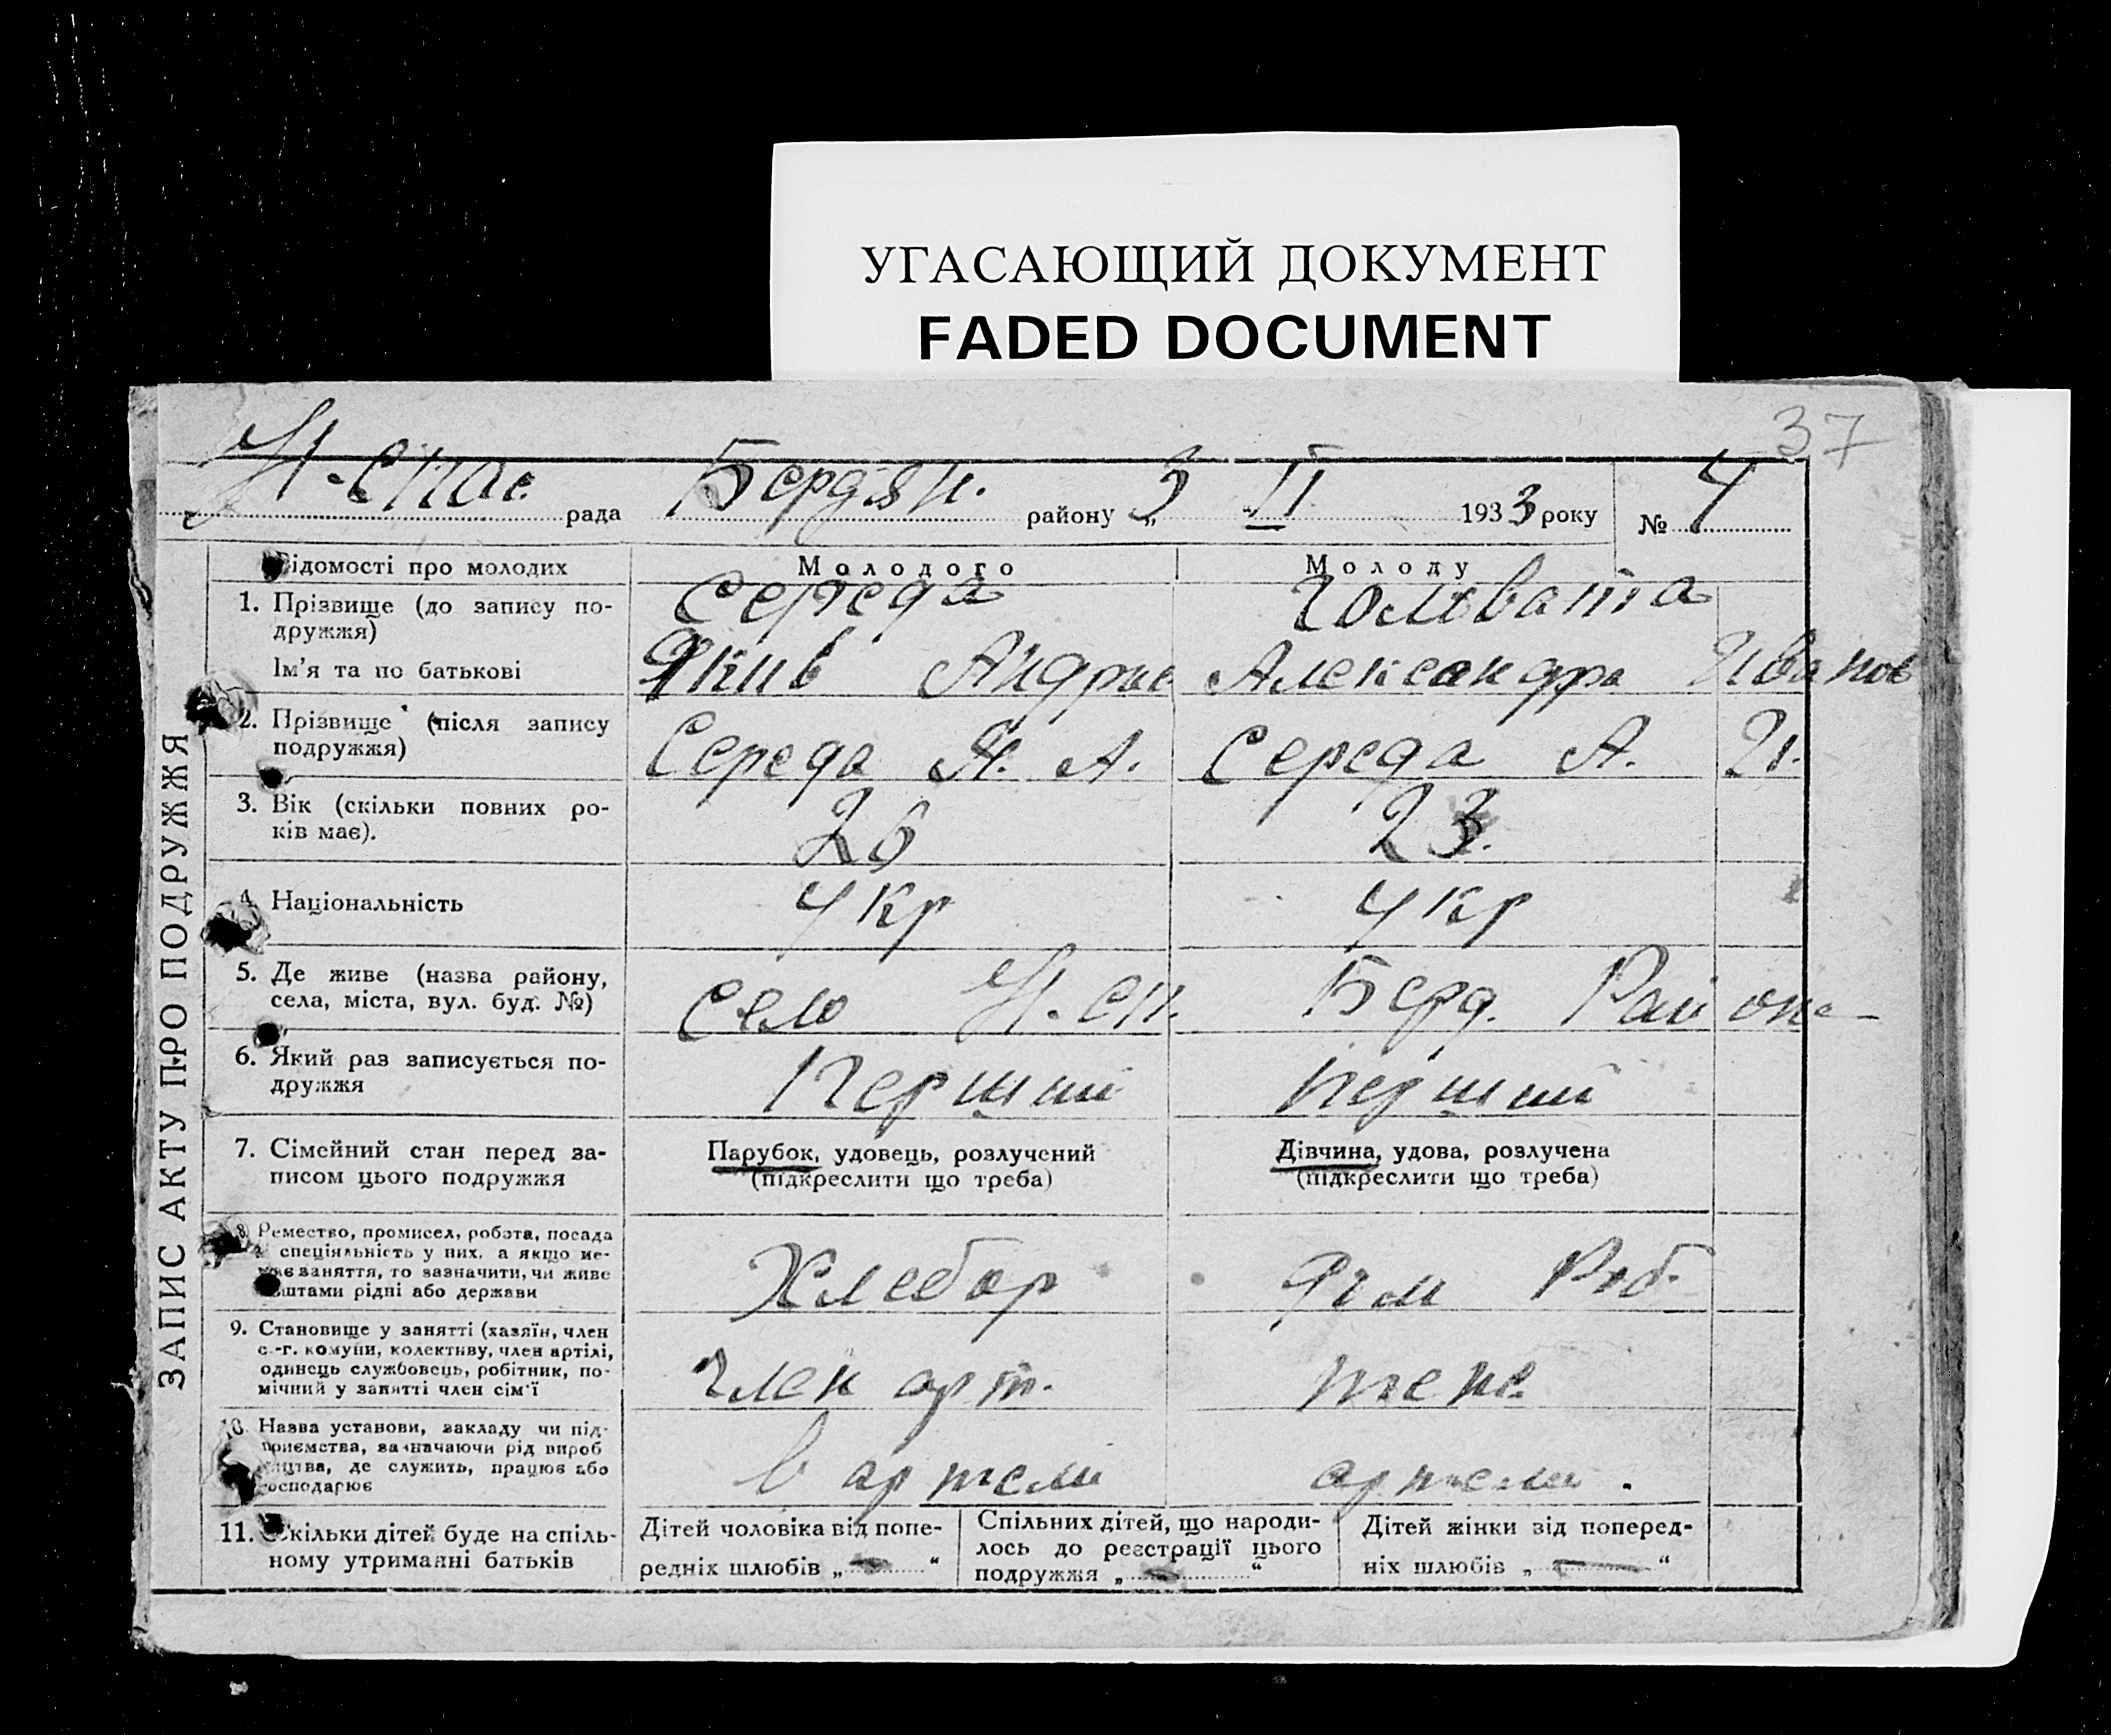 УГАСАЮЩИЙ ДОКУМЕНТ
FADED DOCUMENT
37
Н-Спас. рада Бердян. району „3“ II 1933 року № 4
ЗАПИС АКТУ ПРО ПОДРУЖЖЯ
Відомості про молодих Молодого Молоду
1. Прізвище (до запису по-
дружжя) Середа Головата
Ім'я та по батькові Якив Андрие Александра Иванов
2. Прізвище (після запису
подружжя) Середа Я. А. Середа А. И.
3. Вік (скільки повних ро-
ків має). 26 23.
4. Національність Укр Укр
5. Де живе (назва району,
села, міста, вул. буд. №) село Н. Сп. Берд. Район
6. Який раз записується по-
дружжя Перший перший
7. Сімейний стан перед за-
писом цього подружжя
Парубок, удовець, розлучений
(підкреслити що треба)
Дівчина, удова, розлучена
(підкреслити що треба)
8. Ремество, промисел, робота, посада
спеціяльність у них, а якщо не-
має заняття, то зазначити, чи живе
коштами рідні або держави
Хлебор Роб.
9. Становище у занятті (хазяїн, член
с.-г. комуни, колективу, член артілі,
одинець службовець, робітник, по-
мічний у занятті член сім'ї
член арт. тене.
10. Назва установи, закладу чи під-
приємства, зазначаючи рід вироб
ництва, де служить, працює або
господарює
в артели артели.
11. Скільки дітей буде на спіль-
ному утриманні батьків
Дітей чоловіка від попе-
редніх шлюбів „ — “
Спільних дітей, що народи-
лось до реєстрації цього
подружжя „ — “
Дітей жінки від поперед-
ніх шлюбів „ — “